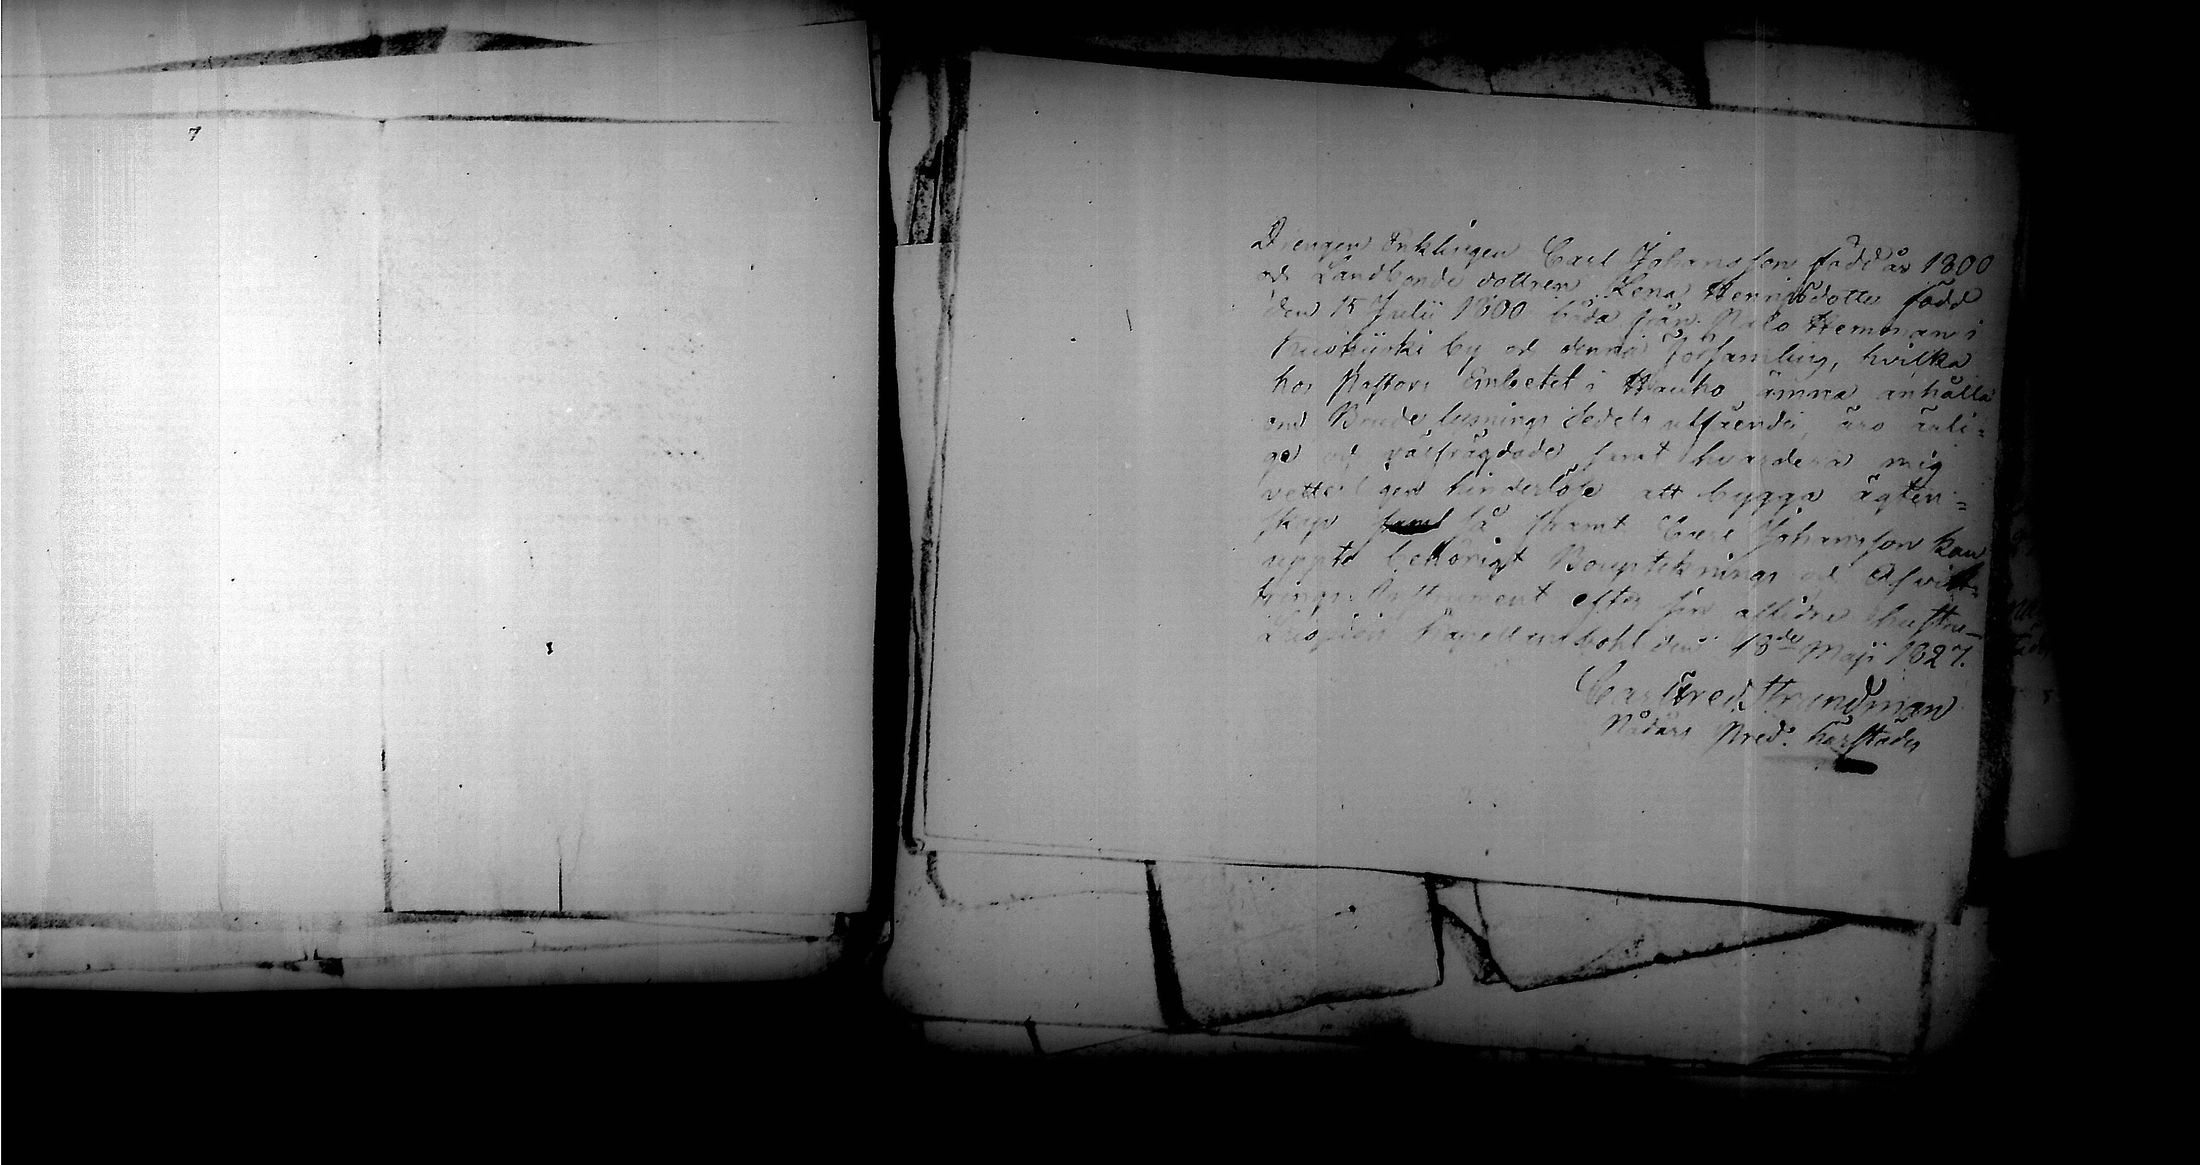 Drengen Enklingen Carl Johansson född år 1800
och Landbonde dottren Lena Henricsdotter född
den 15 Julii 1800 båda från Malo Hemman i
by och denna Församling, hvilka
hos Pastors Embetet i Hauho ämna anhålla
om Brude lysnings Sedels utfärende, äro ärli=
ge och välfrägdade samt hvardera mig
vetterligen hinderlöse att bygga ägten=
skap så framt Carl Johansson kan
uppte behörigt Bouptecknings och Afvitt=
trings Instrument efter sin aflidne hustru
Kapellansbohl den 18de Maji 1827.
Carl Fred. Strandman
Nådårs Pred. härstädes